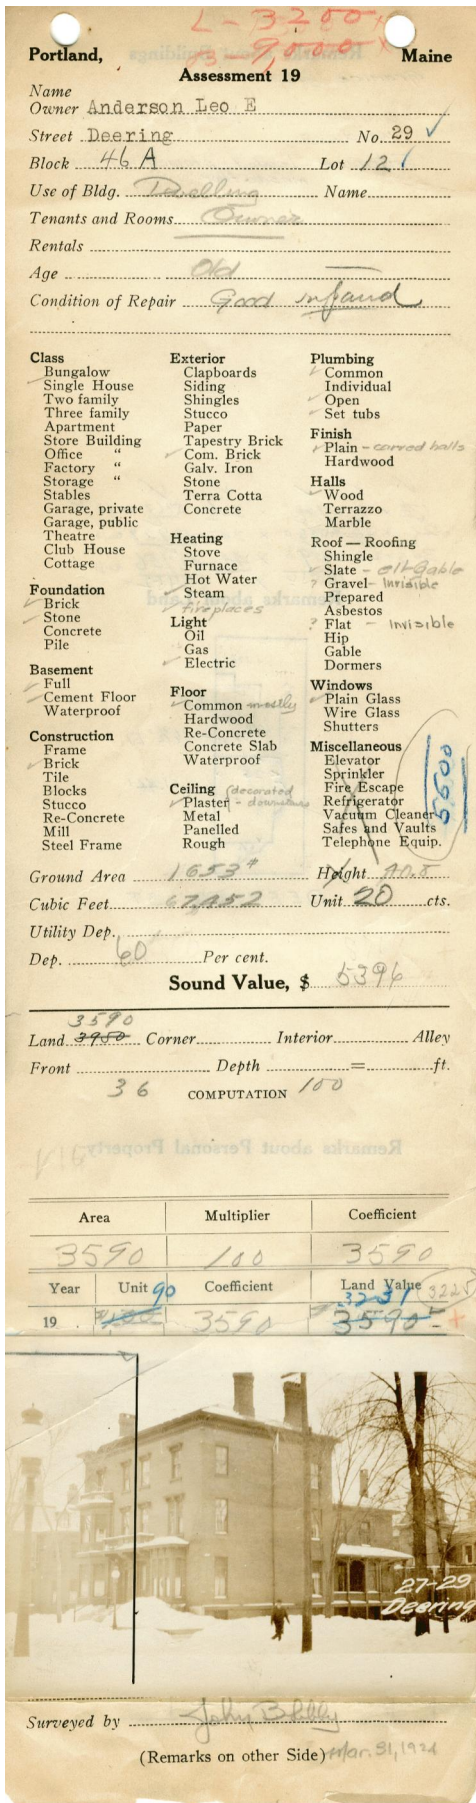 L - 3200 x
B - 9,000 x
Portland, Maine
Assessment 19
Name
Owner Anderson Leo E
Street Deering No. 29 ✓
Block 46 A Lot 12
Use of Bldg. Dwelling Name
Tenants and Rooms Owner
Rentals
Age Old
Condition of Repair Good
Class
Bungalow
✓ Single House
Two family
Three family
Apartment
Store Building
Office "
Factory "
Storage "
Stables
Garage, private
Garage, public
Theatre
Club House
Cottage
Foundation
✓ Brick
✓ Stone
Concrete
Pile
Basement
✓ Full
✓ Cement Floor
Waterproof
Construction
Frame
✓ Brick
Tile
Blocks
Stucco
Re-Concrete
Mill
Steel Frame
Exterior
Clapboards
Siding
Shingles
Stucco
Paper
Tapestry Brick
✓ Com. Brick
Galv. Iron
Stone
Terra Cotta
Concrete
Heating
Stove
Furnace
Hot Water
✓ Steam
✓ fireplaces
Light
Oil
Gas
✓ Electric
Floor
✓ Common mostly
Hardwood
Re-Concrete
Concrete Slab
Waterproof
Ceiling (decorated
✓ Plaster - downstairs
Metal
Panelled
Rough
Plumbing
✓ Common
Individual
✓ Open
✓ Set tubs
Finish
✓ Plain - carved halls
Hardwood
Halls
✓ Wood
Terrazzo
Marble
Roof — Roofing
Shingle
✓ Slate - ell-Gable
? Gravel - Invisible
Prepared
Asbestos
? Flat - Invisible
Hip
Gable
Dormers
Windows
✓ Plain Glass
Wire Glass
Shutters
Miscellaneous
Elevator
Sprinkler
Fire Escape
Refrigerator
Vacuum Cleaner
Safes and Vaults
Telephone Equip.
5500
Ground Area 1653 # Height 40.8
Cubic Feet Unit 20 cts.
Utility Dep.
Dep. 60 Per cent.
Sound Value, $ 5396
3590
Land 3950 Corner Interior Alley
Front Depth = ft.
36 COMPUTATION 100
Area Multiplier Coefficient
3590 100 3590
Year Unit 90 Coefficient Land Value 3225
3231
19 3590 3590
27-29
Deering
Surveyed by John B
(Remarks on other Side) Mar. 31, 1924